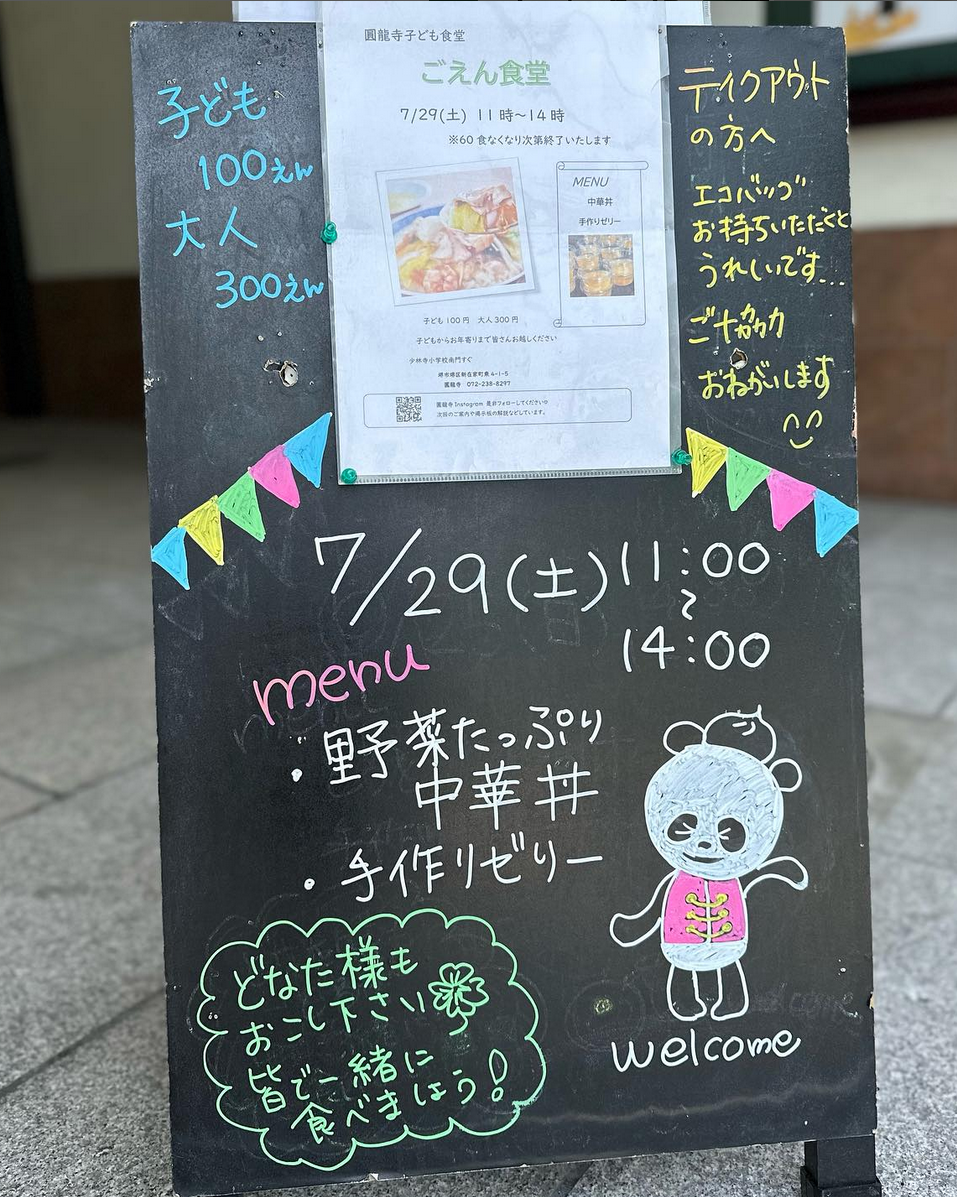 圓龍寺子ども食堂
ごえん食堂
7/29(土) 11時～14時
※60食なくなり次第終了いたします
MENU
中華丼
手作りゼリー
子ども100円 大人300円
子どもからお年寄りまで皆さんお越しください
少林寺小学校南門すぐ
堺市堺区新在家町東4-1-5
圓龍寺 072-238-8297
圓龍寺Instagram 是非フォローしてください♡
次回のご案内や掲示板の解説などしています。
子ども
100えん
大人
300えん
テイクアウト
の方へ
エコバッグ
お持ちいただくと
うれしいです...
ご協力
おねがいします
7/29(土)11:00
～
14:00
menu
・野菜たっぷり
中華丼
・手作りゼリー
どなた様も
おこし下さい
皆で一緒に
食べましょう!
welcome